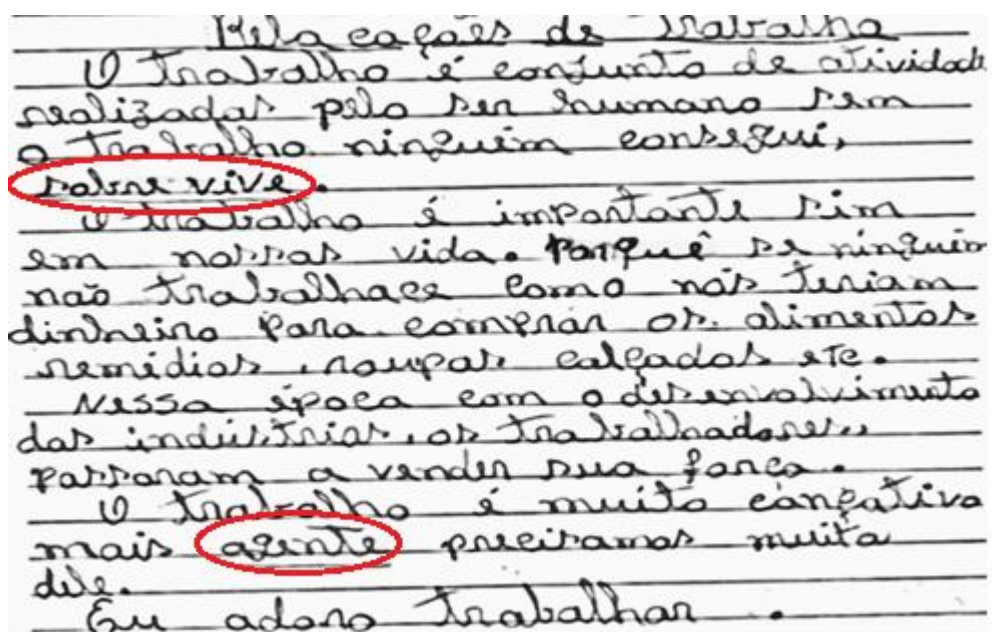 Rela cações de Trabalho
O Trabalho é conjunto de atividade
realizadas pelo ser humano sem
o Trabalho ninguém consegui,
sobre vive.
O trabalho é importante sim
em nossas vida. Porquê se ninguém
não trabalhace como nós teriam
dinheiro para comprar os alimentos
remédios, roupas calçados etc.
Nessa época com o desenvolvimento
das indústrias, os trabalhadores,,
passaram a vender sua força.
O trabalho é muito cançativo
mais agente precisamos muito
dele.
Eu adoro trabalhar.